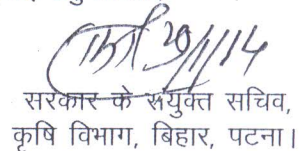 29/1/14
सरकार के संयुक्त सचिव,
कृषि विभाग, बिहार, पटना।